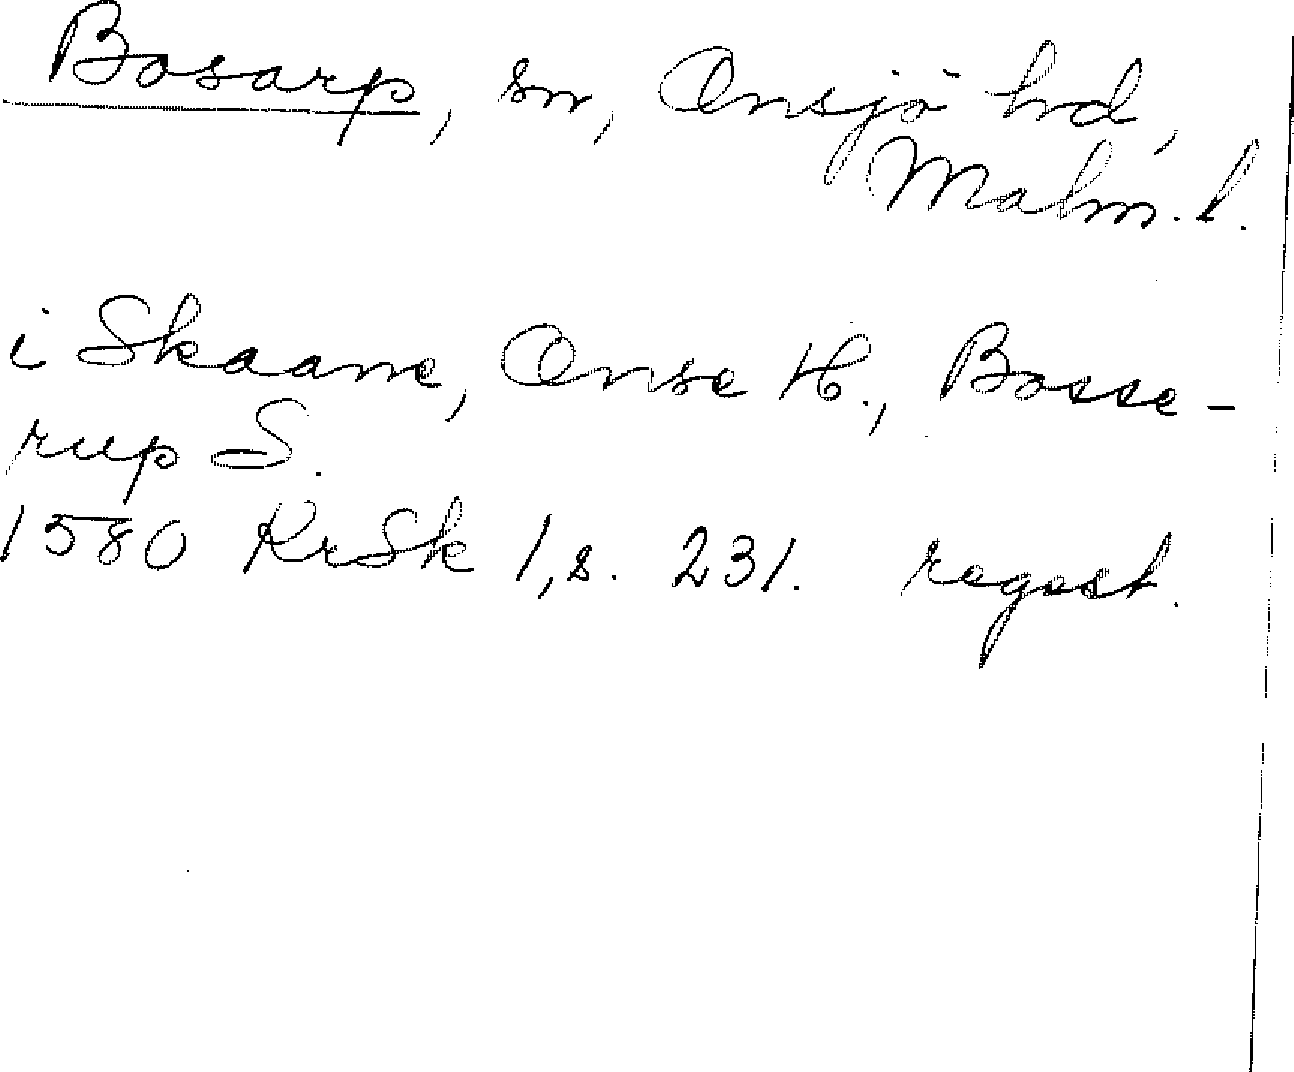 Bosarp, sn, Onsjö hd,
Malm. l.
i Skaane, Onse H., Bosse-
rup S.
1580 KrSk 1, s. 231. regest.